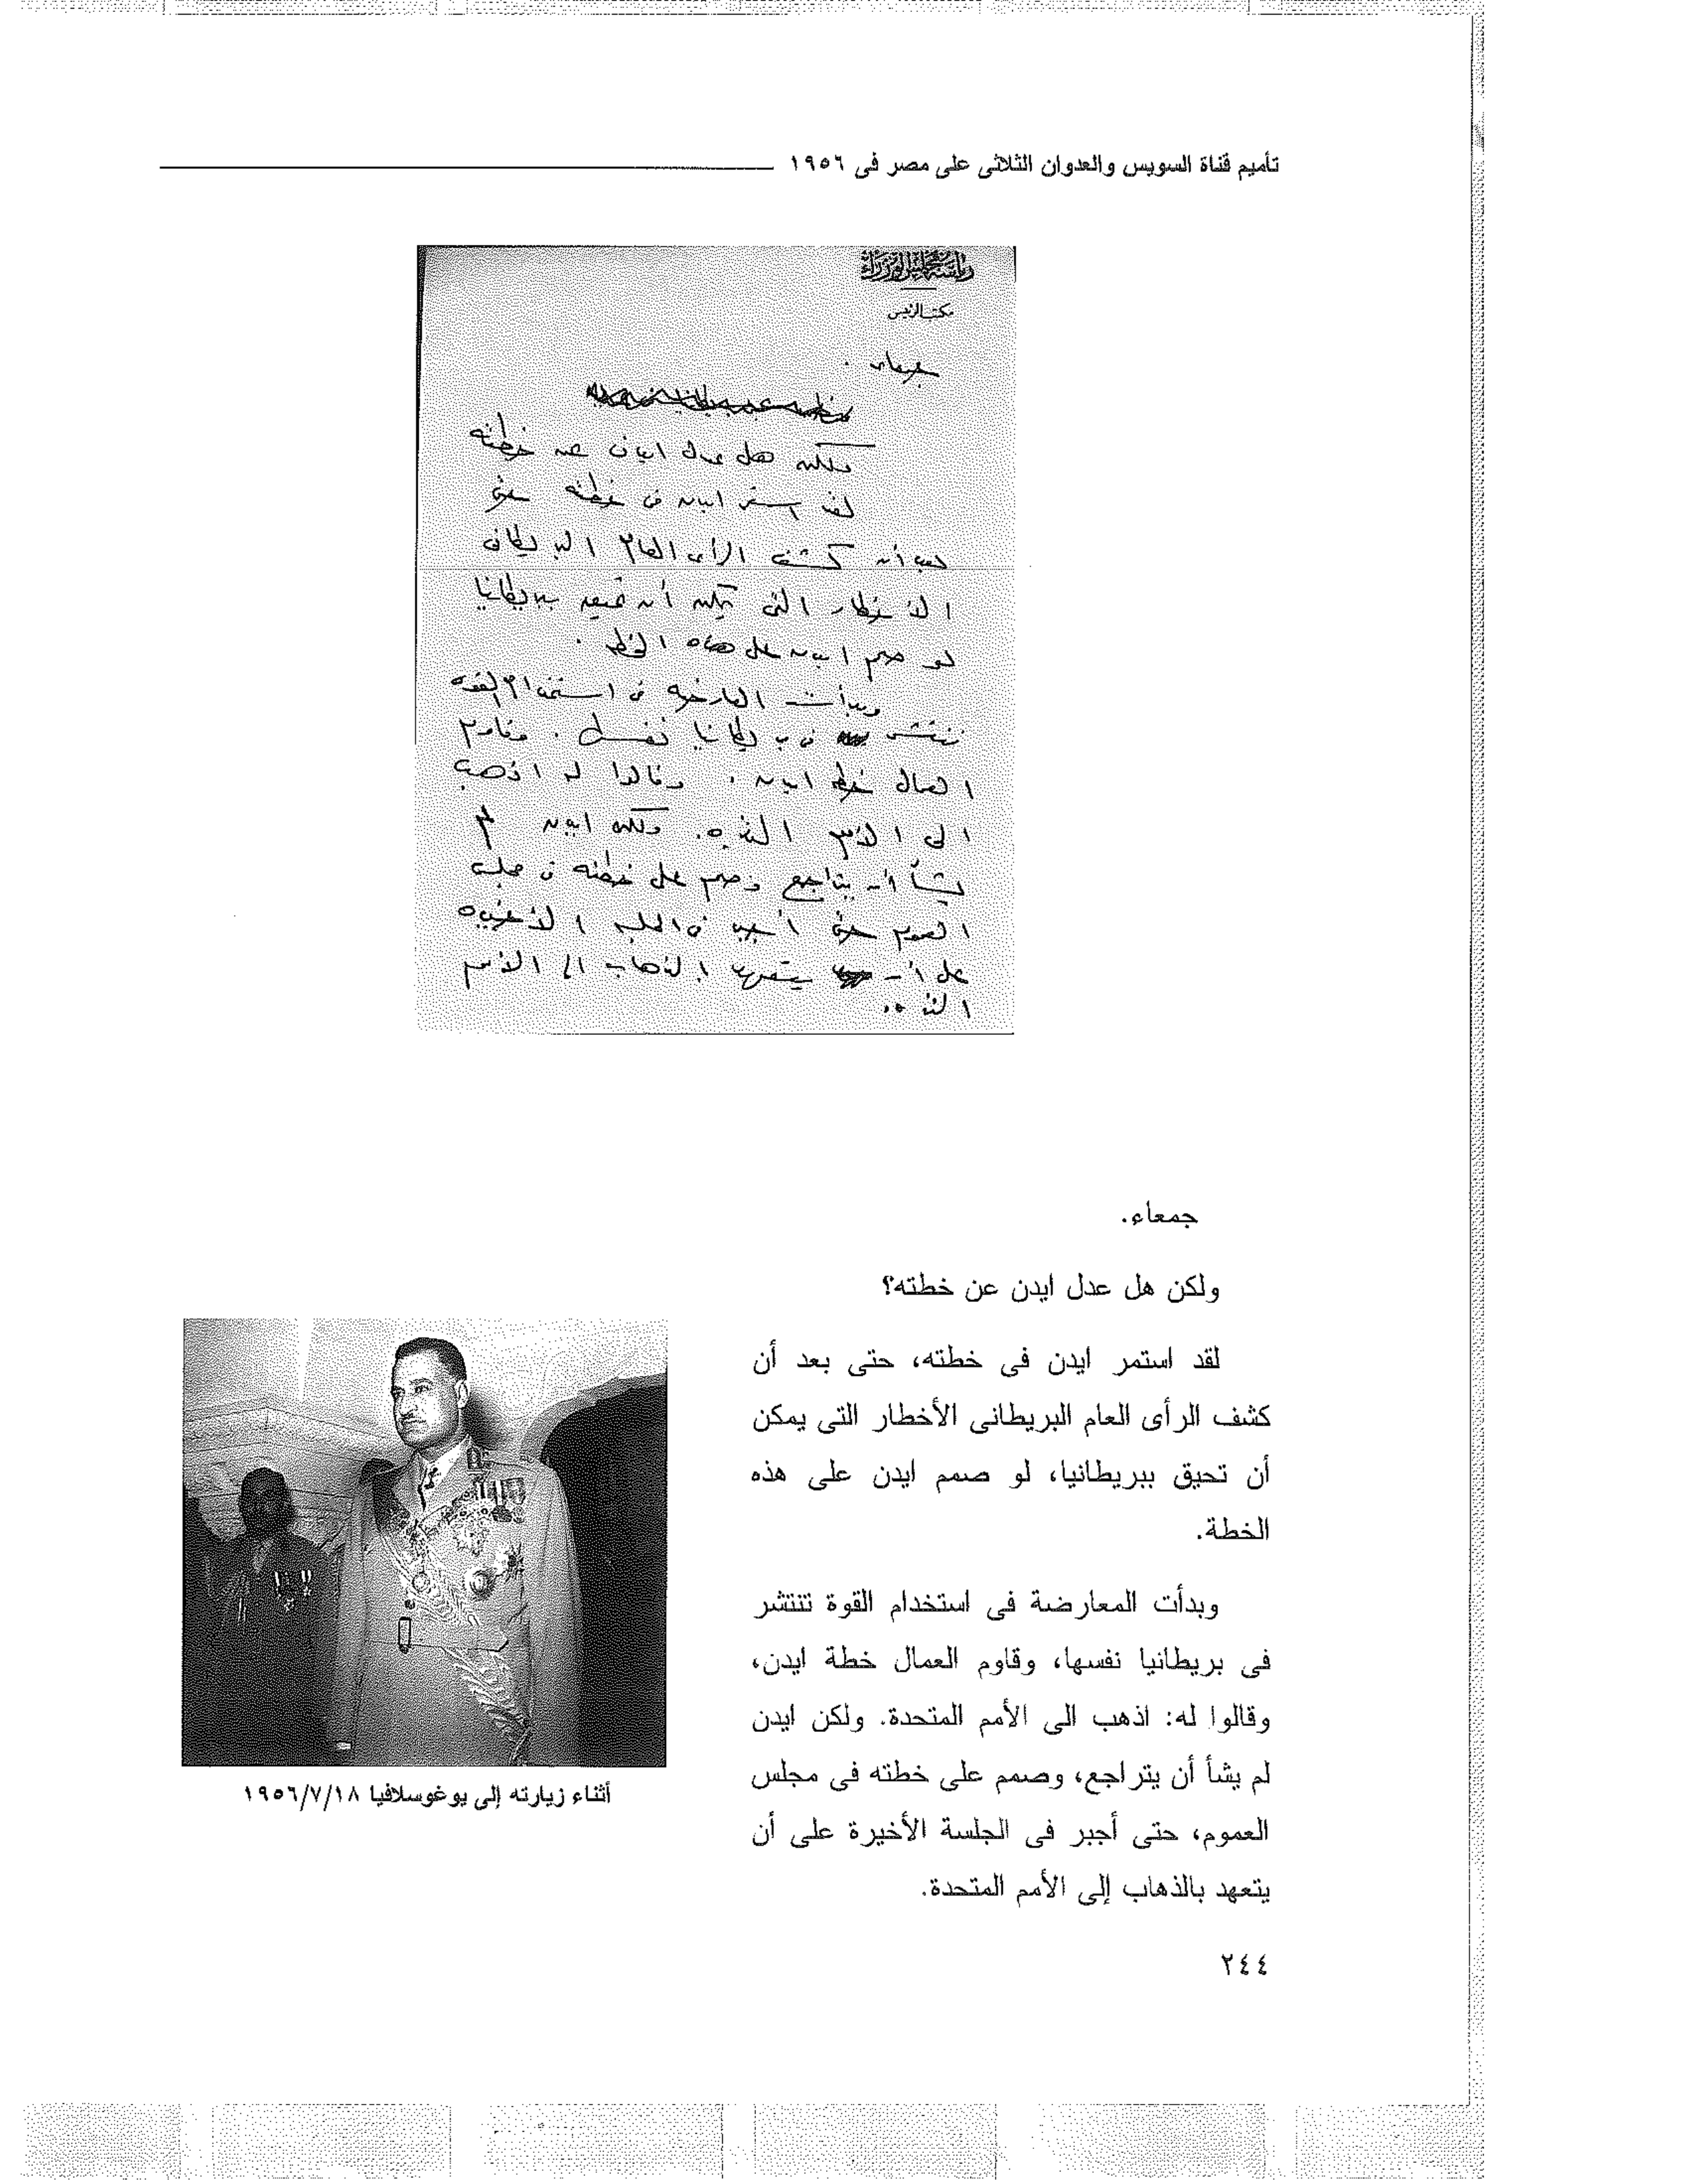 تأميم قناة السويس والعدوان الثلاثى على مصر فى ١٩٥٦
رياسة مجلس الوزراء
مكتب الرئيس
جمعاء .
ولكن هل عدل ايدن عن خطته
لقد استمر ايدن فى خطته حتى
بعد أن كشف الرأى العام البريطانى
الأخطار التى يمكن أن تحيق ببريطانيا
لو صمم ايدن على هذه الخطة .
وبدأت المعارضة فى استخدام القوة
تنتشر فى بريطانيا نفسها . وقاوم
العمال خطة ايدن . وقالوا له اذهب
الى الأمم المتحدة . ولكن ايدن لم
يشأ أن يتراجع وصمم على خطته فى مجلس
العموم حتى أجبر فى الجلسة الأخيرة
على أن يتعهد بالذهاب الى الأمم
المتحدة .
جمعاء.
ولكن هل عدل ايدن عن خطته؟
لقد استمر ايدن فى خطته، حتى بعد أن
كشف الرأى العام البريطانى الأخطار التى يمكن
أن تحيق ببريطانيا، لو صمم ايدن على هذه
الخطة.
وبدأت المعارضة فى استخدام القوة تنتشر
فى بريطانيا نفسها، وقاوم العمال خطة ايدن،
وقالوا له: اذهب الى الأمم المتحدة. ولكن ايدن
لم يشأ أن يتراجع، وصمم على خطته فى مجلس
العموم، حتى أجبر فى الجلسة الأخيرة على أن
يتعهد بالذهاب إلى الأمم المتحدة.
أثناء زيارته إلى يوغوسلافيا ١٩٥٦/٧/١٨
٢٤٤